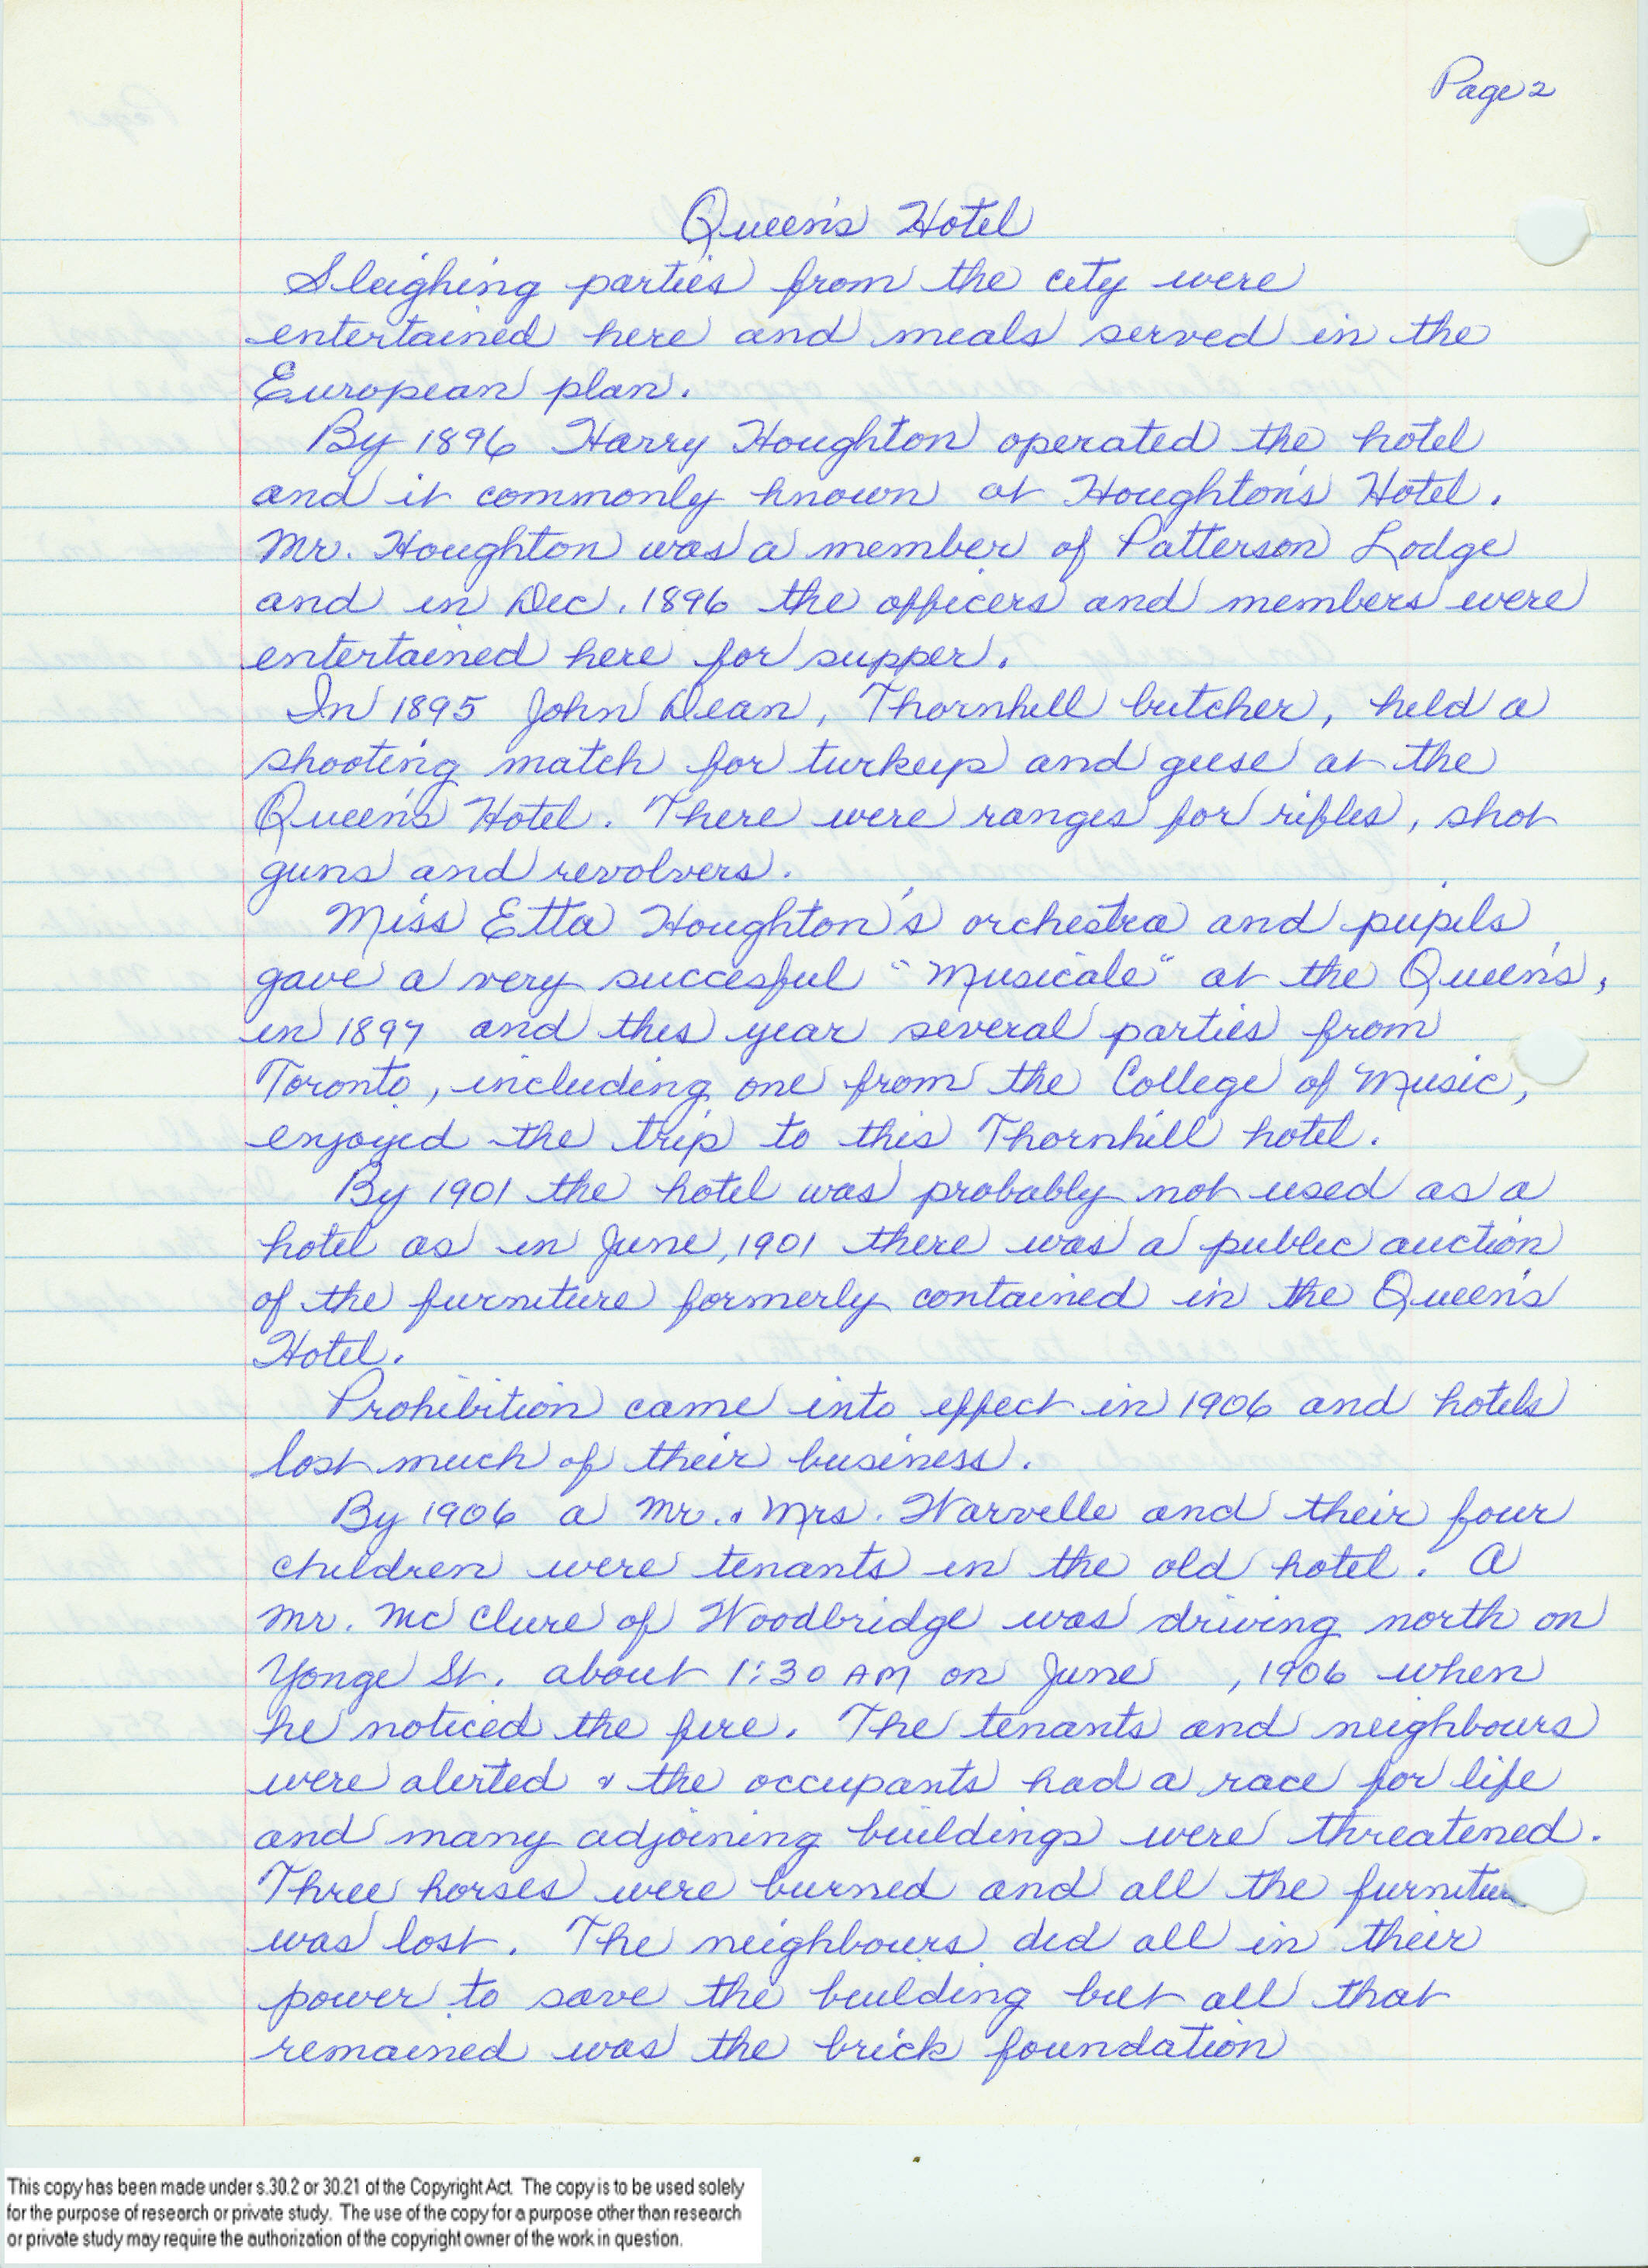 Page 2
Queen's Hotel
Sleighing parties from the city were
entertained here and meals served in the
European plan.
By 1896 Harry Houghton operated the hotel
and it commonly known at Houghton's Hotel.
Mr. Houghton was a member of Patterson Lodge
and in Dec. 1896 the officers and members were
entertained here for supper.
In 1895 John Dean, Thornhill butcher, held a
shooting match for turkeys and geese at the
Queen's Hotel. There were ranges for rifles, shot
guns and revolvers.
Miss Etta Houghton's orchestra and pupils
gave a very succesful "Musicale" at the Queen's,
in 1897 and this year several parties from
Toronto, including one from the College of Music,
enjoyed the trip to this Thornhill hotel.
By 1901 the hotel was probably not used as a
hotel as in June, 1901 there was a public auction
of the furniture formerly contained in the Queen's
Hotel.
Prohibition came into effect in 1906 and hotels
lost much of their business.
By 1906 a Mr. & Mrs. Warvelle and their four
children were tenants in the old hotel. A
Mr. McClure of Woodbridge was driving north on
Yonge St. about 1:30 AM on June , 1906 when
he noticed the fire. The tenants and neighbours
were alerted & the occupants had a race for life
and many adjoining buildings were threatened.
Three horses were burned and all the furnitu
was lost. The neighbours did all in their
power to save the building but all that
remained was the brick foundation
This copy has been made under s.30.2 or 30.21 of the Copyright Act. The copy is to be used solely
for the purpose of research or private study. The use of the copy for a purpose other than research
or private study may require the authorization of the copyright owner of the work in question.